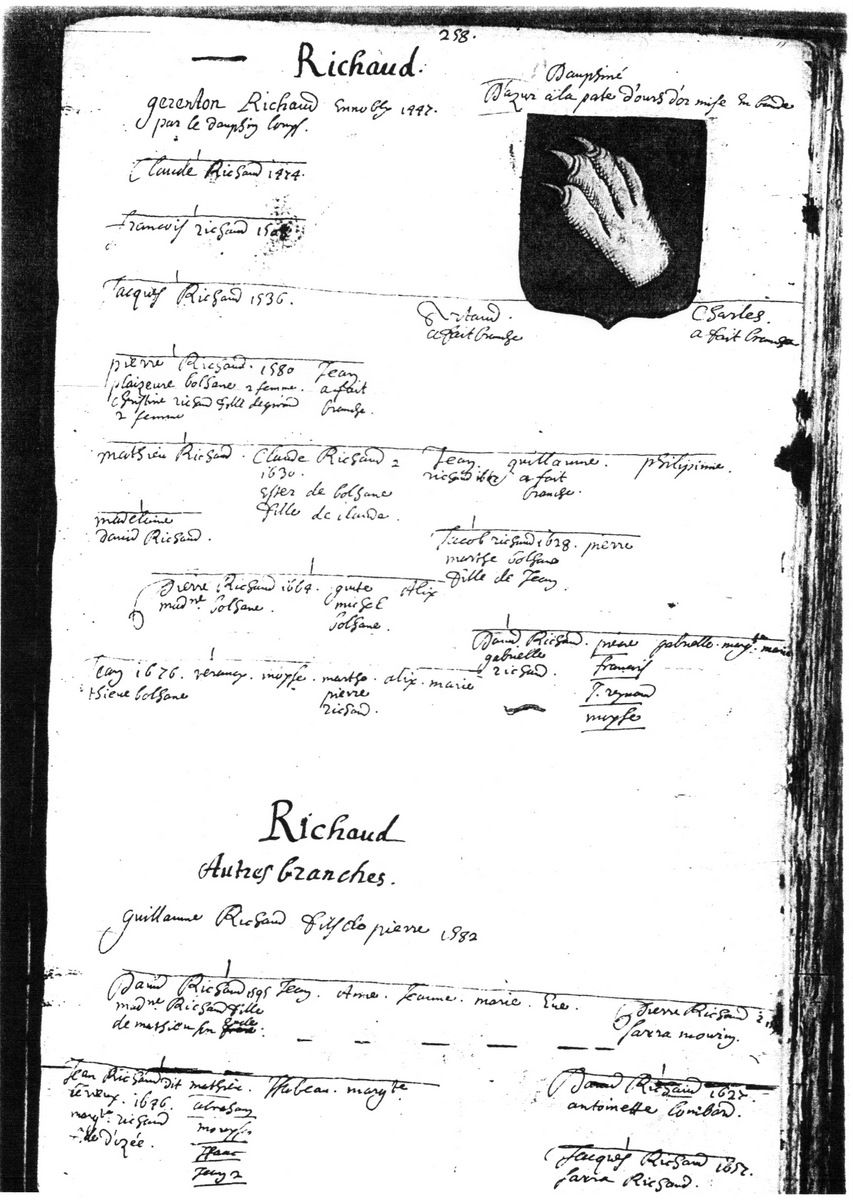 258.
Richaud.
Dauphiné
D'azur à la pate d'ours d'or mise en bande
gerenton Richaud Ennobly 1447.
par le dauphin Louys.
Claude Richaud 1474.
francois richaud
Jacques Richaud 1536.
Artaud.
a fait branche
Charles.
a fait branche
pierre Richaud. 1580 Jean
plaizence bolsane 2 femme. a fait
christine richaud fille de branche.
2 femme
mathieu Richaud. Claude Richaud 2 Jean guillaume. philipinne.
1630. richaud a fait
Ester de bolsane branche.
fille de claude.
madelaine
David Richaud.
Jacob richaud 1628. pierre
marthe bolsane
fille de Jean.
pierre Richaud 1664. guite Alix
mad.ne bolsane. michel
bolsane.
David Richaud. pierre gabrielle. marg.te marie
gabrielle francois
richaud. J. reynaud
moyse
Jean 1676. moyse. marthe. alix. marie
bolsane pierre
richaud.
Richaud
Autres branches.
guillaume Richaud fils de pierre 1582
David Richaud 1595 Jean. Jeanne. marie. Eve. pierre Richaud 2
mad.ne Richaud fille Sarra mourin.
de mathieu
Jean Richaud dit mathieu. Isabeau. marg.te
1646. abraham
marg.te richaud
d'ozée. Isaac
Jean 2
David Richaud 1627.
antoinette Lombard.
Jacques Richaud 1657.
Sarra Richaud.